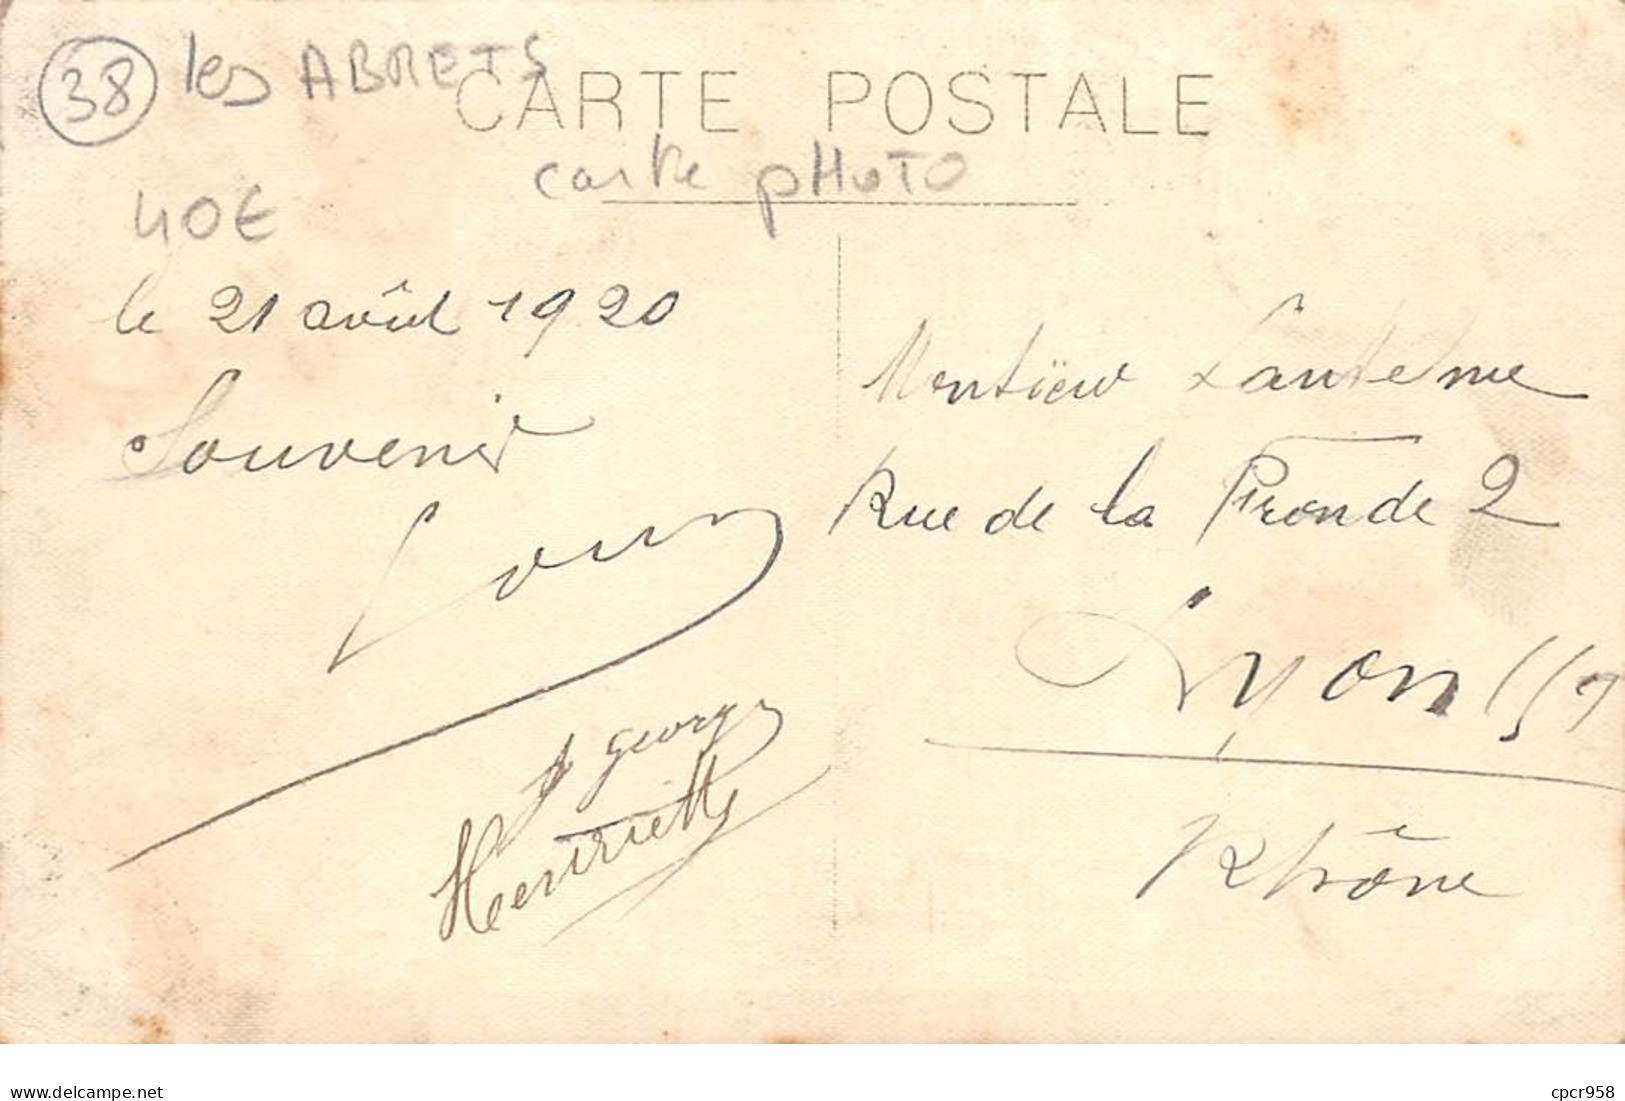 38 les ABRETS
CARTE POSTALE
carte pHOTO
40€
le 21 août 1920
Souvenir
Louis
Georges
Henriette
Monsieur Lanterme
Rue de la Fronde 2
Lyon
Rhône
delcampe.net
cpcr958